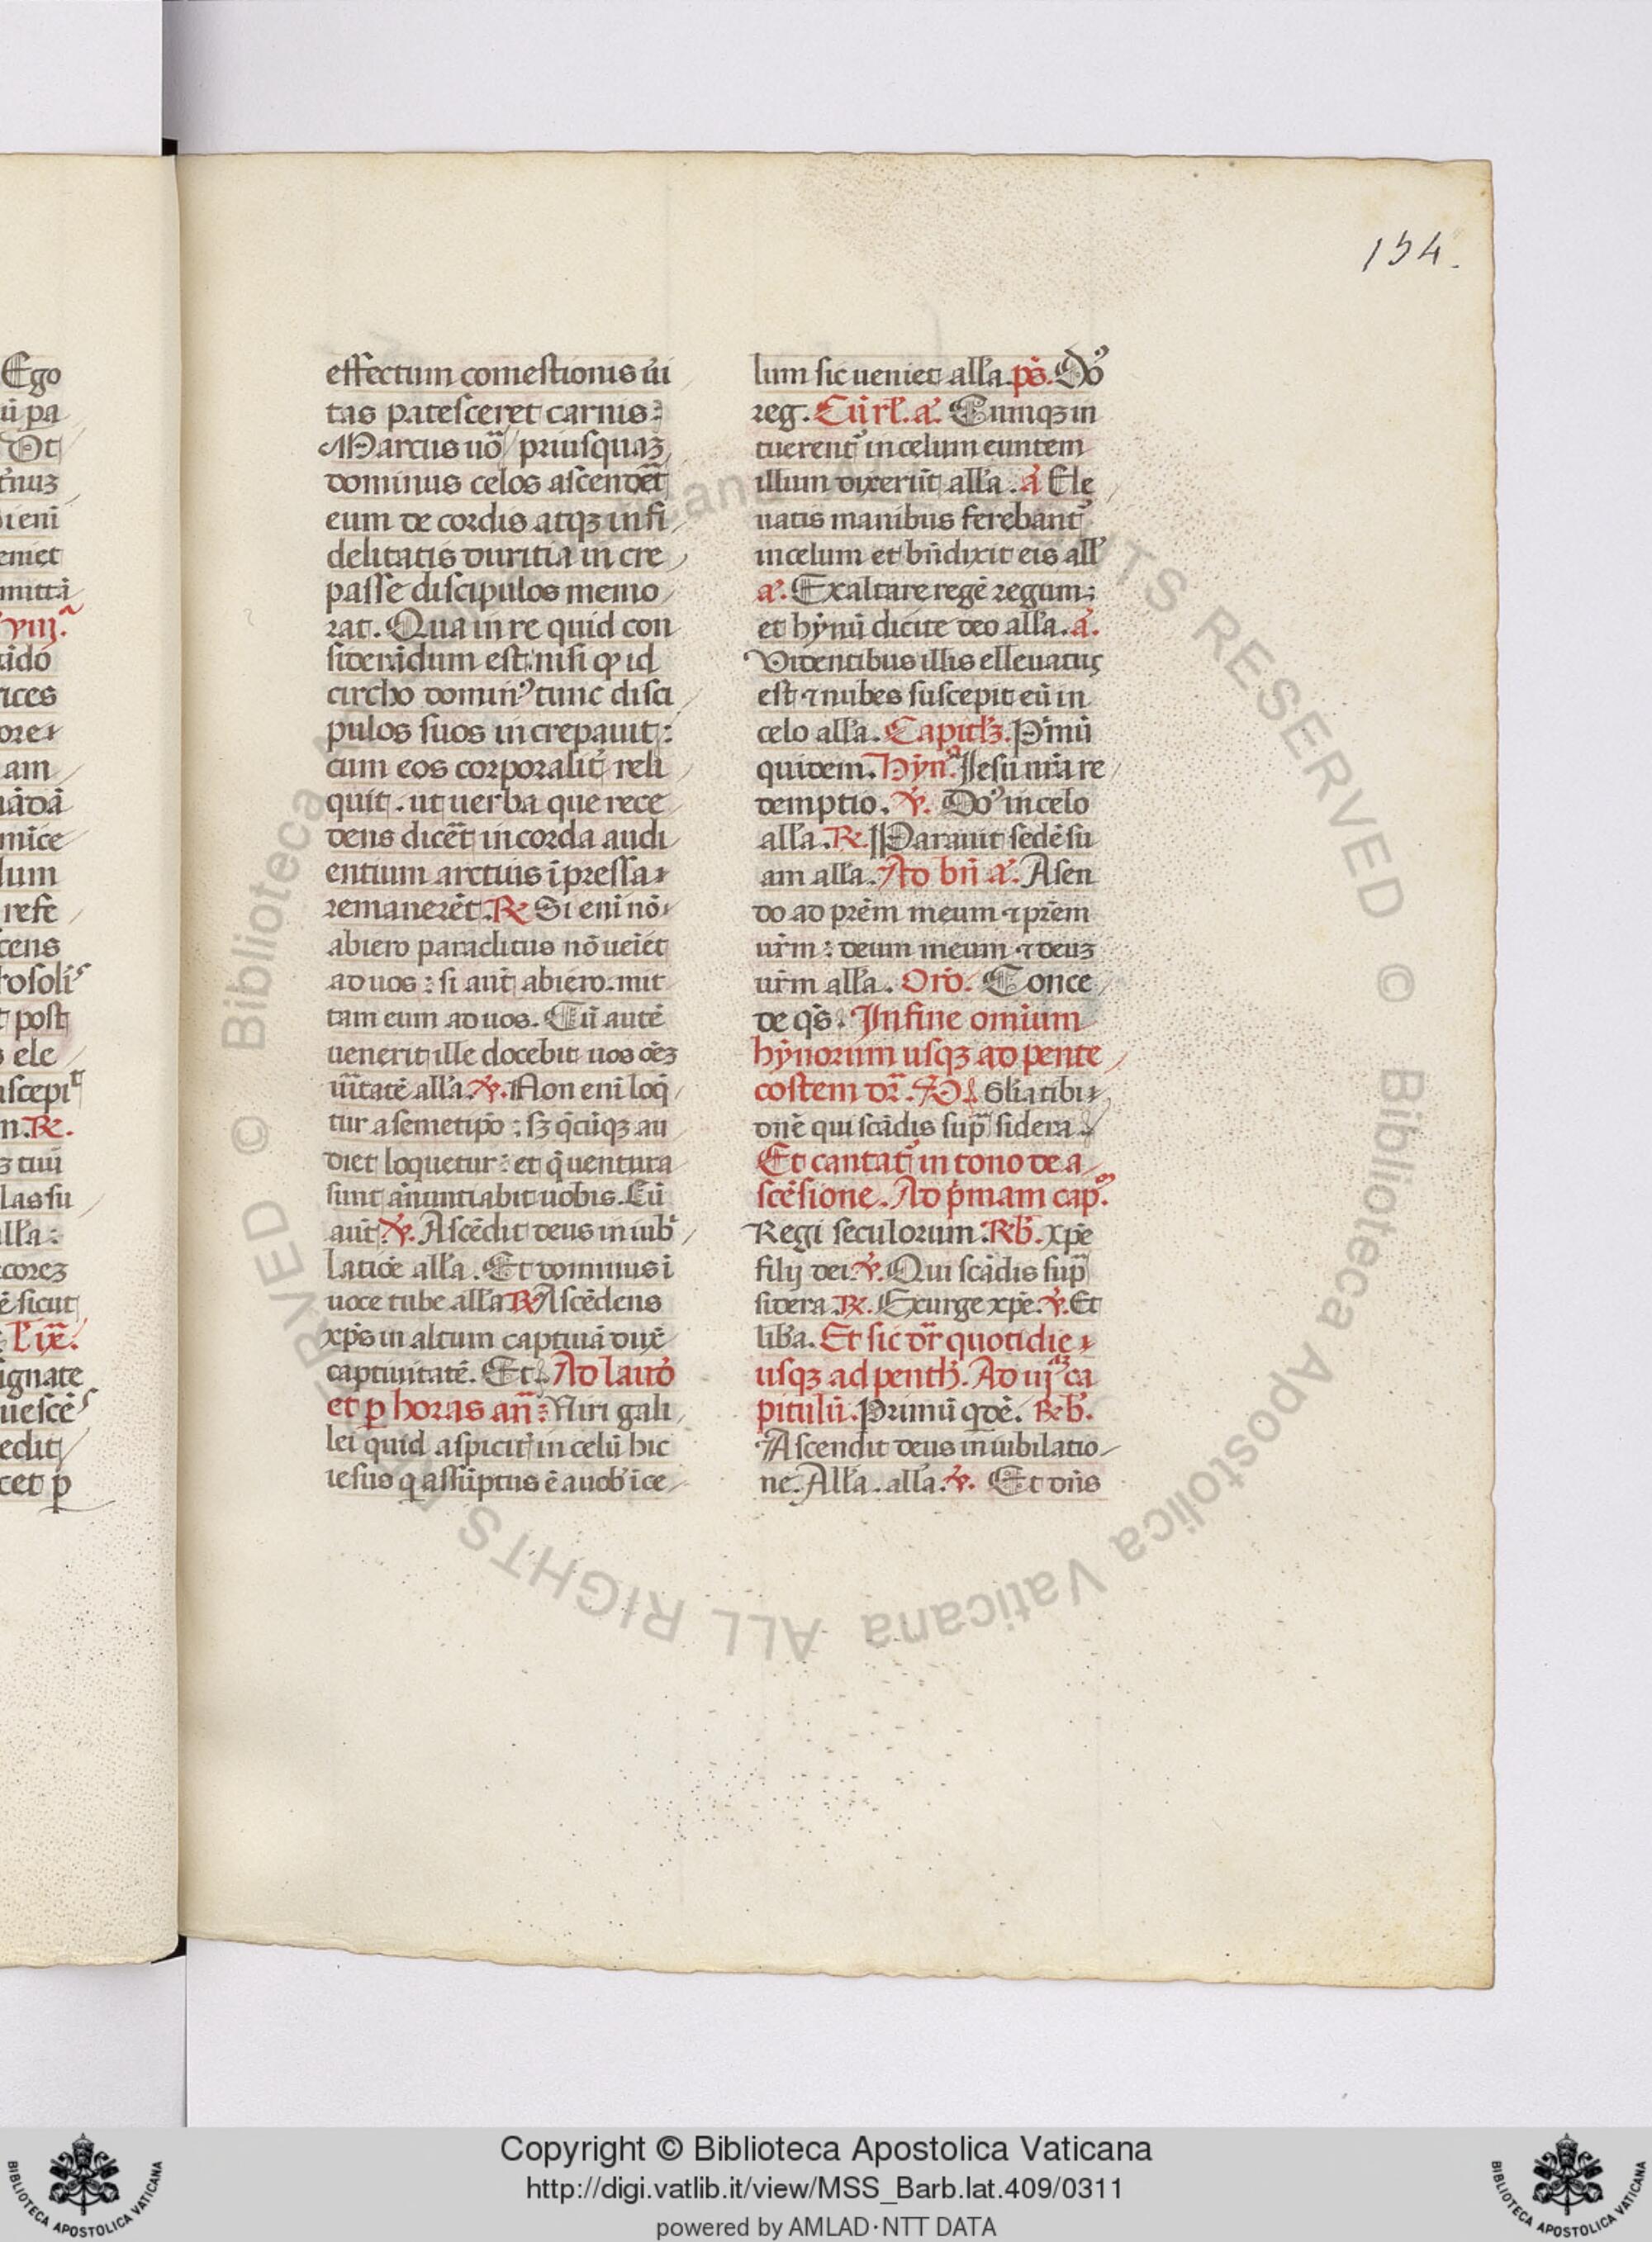 154.
Ego
ū pa
Ot
t'nuz
ieni
eniet
mittā
viij.
ices
ore
am
mīce
lum
refe
cens
rosolis
t post
s ele
uscepit
n. R.
z tui
las su
alla:
corez
ē sicut
l' ix.
ignate
uescēs
edit
cet p
effectum comestionis ūi
tas patesceret carnis:
Marcus uō / priusquaz
dominus celos ascendēt
eum de cordis atqz infi
delitatis duritia in cre
passe discipulos memo
rat. Qua in re quid con
siderādum est: nisi qp id
circho domin' tunc disci
pulos suos increpauit:
cum eos corporalit' reli
quit. ut uerba que rece
dens dicēt in corda audi
entium arctius īpressa
remanerēt. R Si enī nō
abiero paraclitus nō ueīet
ad uos: si aūt abiero. mit
tam eum ad uos. Cū autē
uenerit ille docebit uos oēz
uītatē alla. V. Non enī loq̄
tur a semetipō: sz q̄cūqz au
diet loquetur: et q̄ uentura
sunt ānuntiabit uobis. Cū
aūt V. Ascēdit deus in iub
latiōe alla. Et dominus ī
uoce tube alla R Ascēdens
xp̄s in altum captiuā duxē
captiuitatē. Et. Ad laudō
et p horas an̄: Niri gali
lei quid aspicit' in celū hic
iesus q assūptus ē a uob' ice
lum sic ueniet alla. ps. Do'
reg. Cū rl'. a. Cumqz in
tuerent' in celum euntem
illum dixerūt alla. a Ele
uatis manibus ferebant'
in celum et bn̄dixit eis all'
a. Exaltare regē regum:
et hȳnū dicite deo alla. a.
Videntibus illis elleuatus
est ⁊ nubes suscepit eū in
celo alla. Capitlz. P'mū
quidem. Hȳn. Iesu nr̄a re
demptio. V. Do' in celo
alla. R. Parauit sedē su
am alla. Ad bn̄ a. Asen
do ad prēm meum ⁊ prēm
ur̄m: deum meum ⁊ deuz
ur̄m alla. Orō. Conce
de qs̄. In fine omīum
hȳnorum usqz ad pente
costem dr̄. Gl'ia tibi
dnē qui scādis sup̄ sidera
Et cantat' in tono de a
scēsione. Ad p̄mam cap.
Regi seculorum. Rb. xpē
filij dei. V. Qui scādis sup̄
sidera. R. Exurge xpē. V. Et
lib'a. Et sic dr̄ quotidie
usqz ad penth. Ad iij ca
pitulū. Primū qdē. Rb.
Ascendit deus in iubilatio
ne. Alla. alla. V. Et dn̄s
Copyright © Biblioteca Apostolica Vaticana
http://digi.vatlib.it/view/MSS_Barb.lat.409/0311
powered by AMLAD·NTT DATA
BIBLIOTECA APOSTOLICA VATICANA
BIBLIOTECA APOSTOLICA VATICANA
© Biblioteca Apostolica Vaticana ALL RIGHTS RESERVED
© Biblioteca Apostolica Vaticana ALL RIGHTS RESERVED